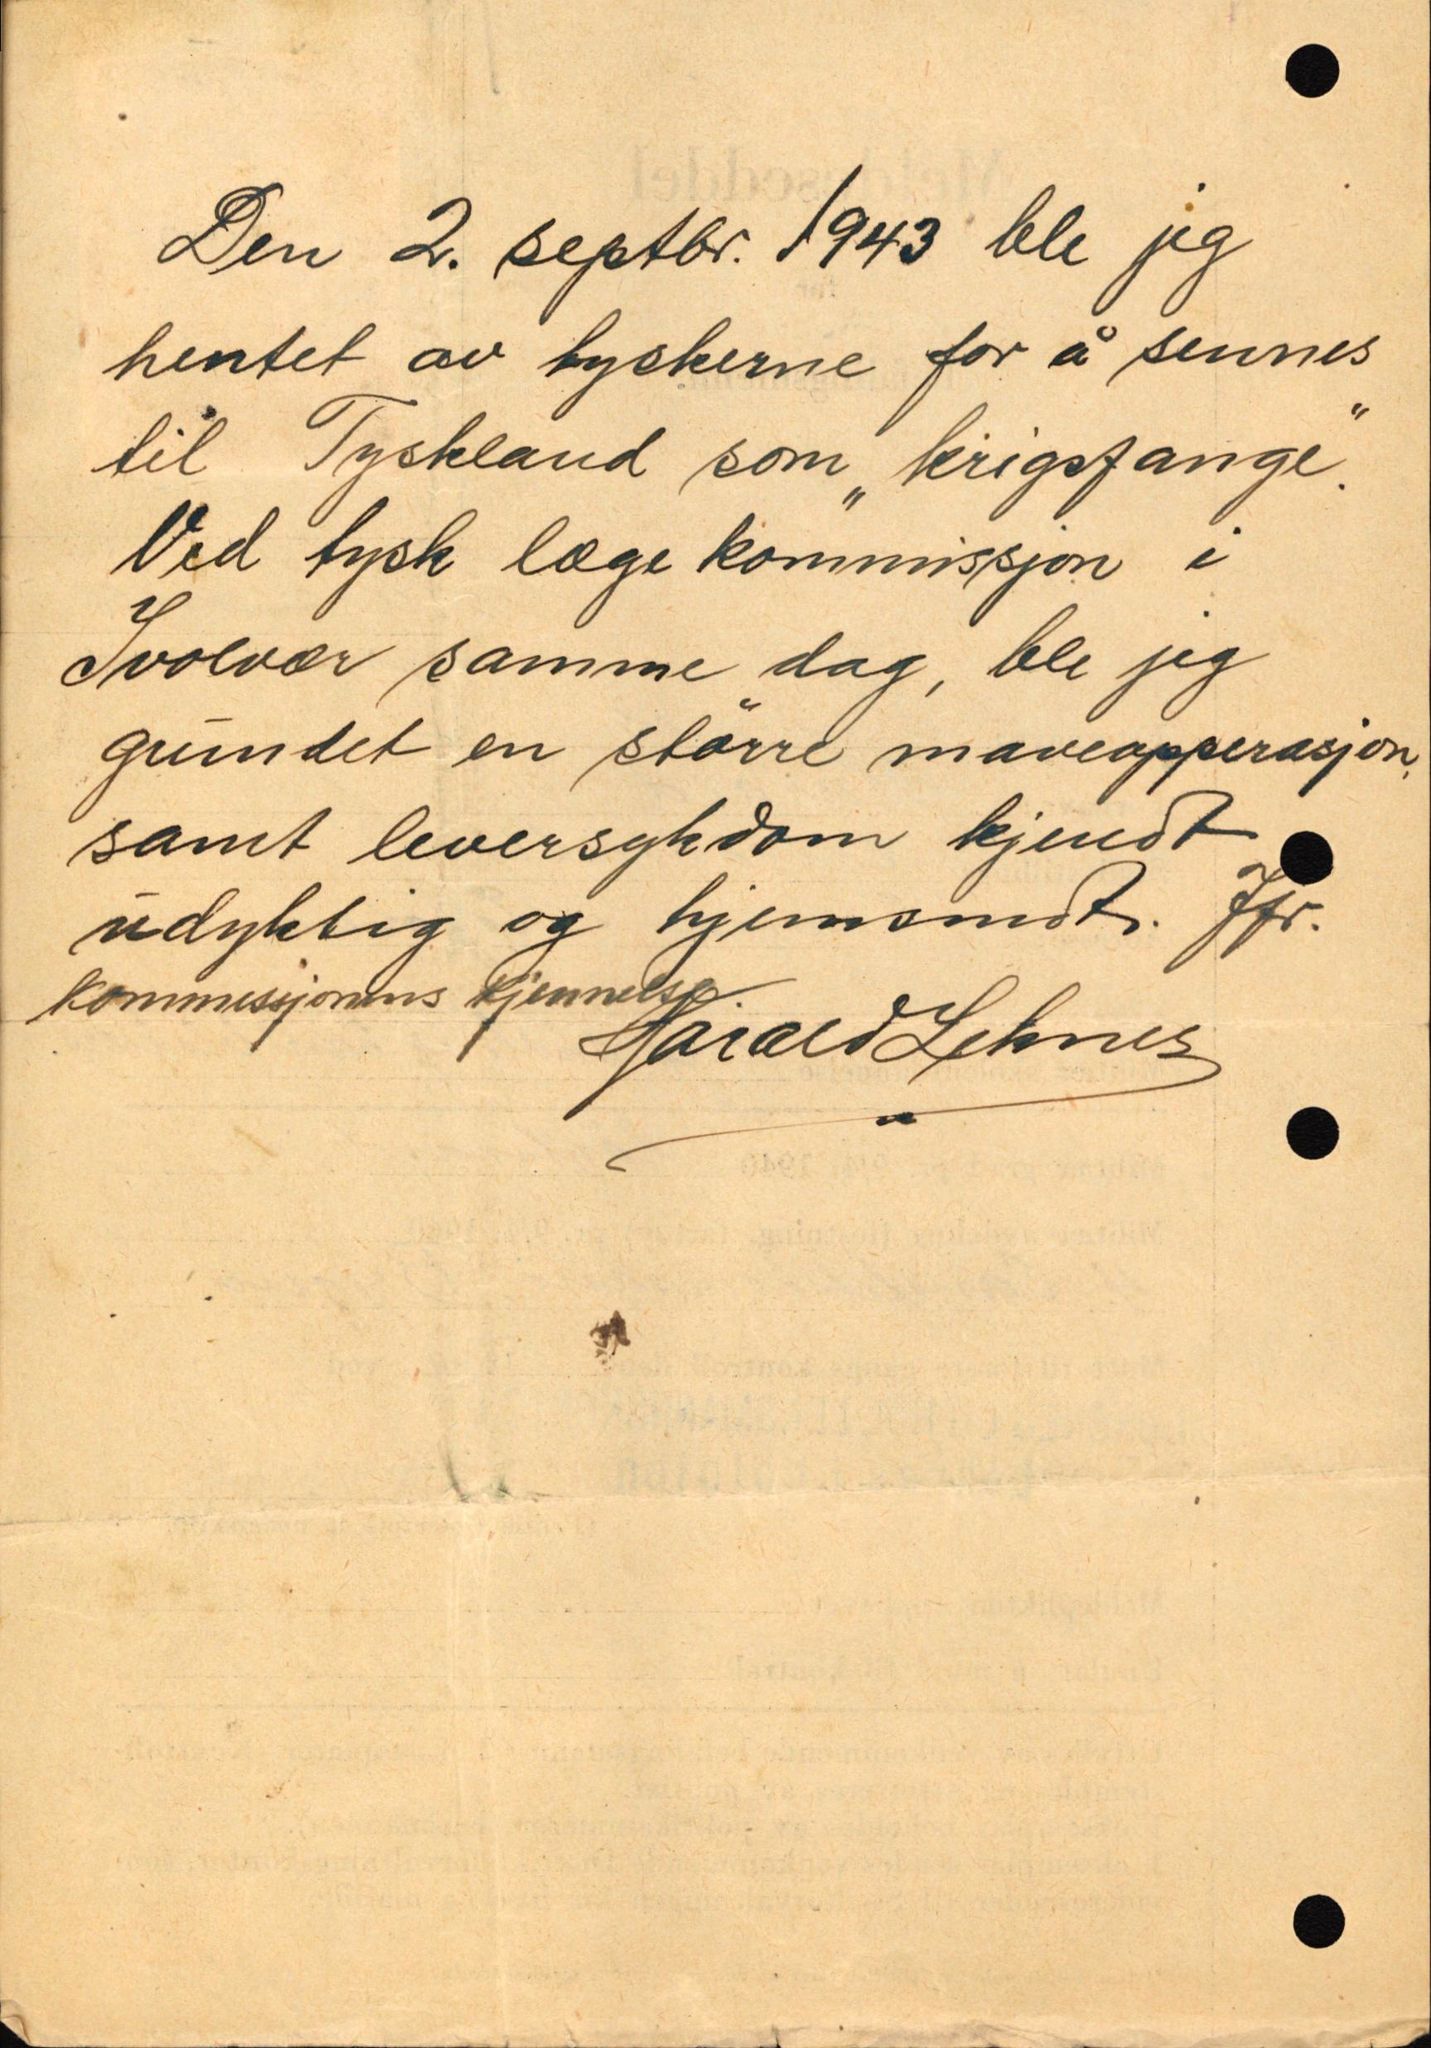 Den 2. septbr. 1943 ble jeg
hentet av tyskerne for å sennes
til Tyskland som „krigsfange".
Ved tysk lægekommissjon i
Svolvær samme dag, ble jeg
grundet en större maveopperasjon,
samt leversykdom kjendt
udyktig og hjemsendt. Jfr.
kommissjonens kjennelse.
Harald Leknes